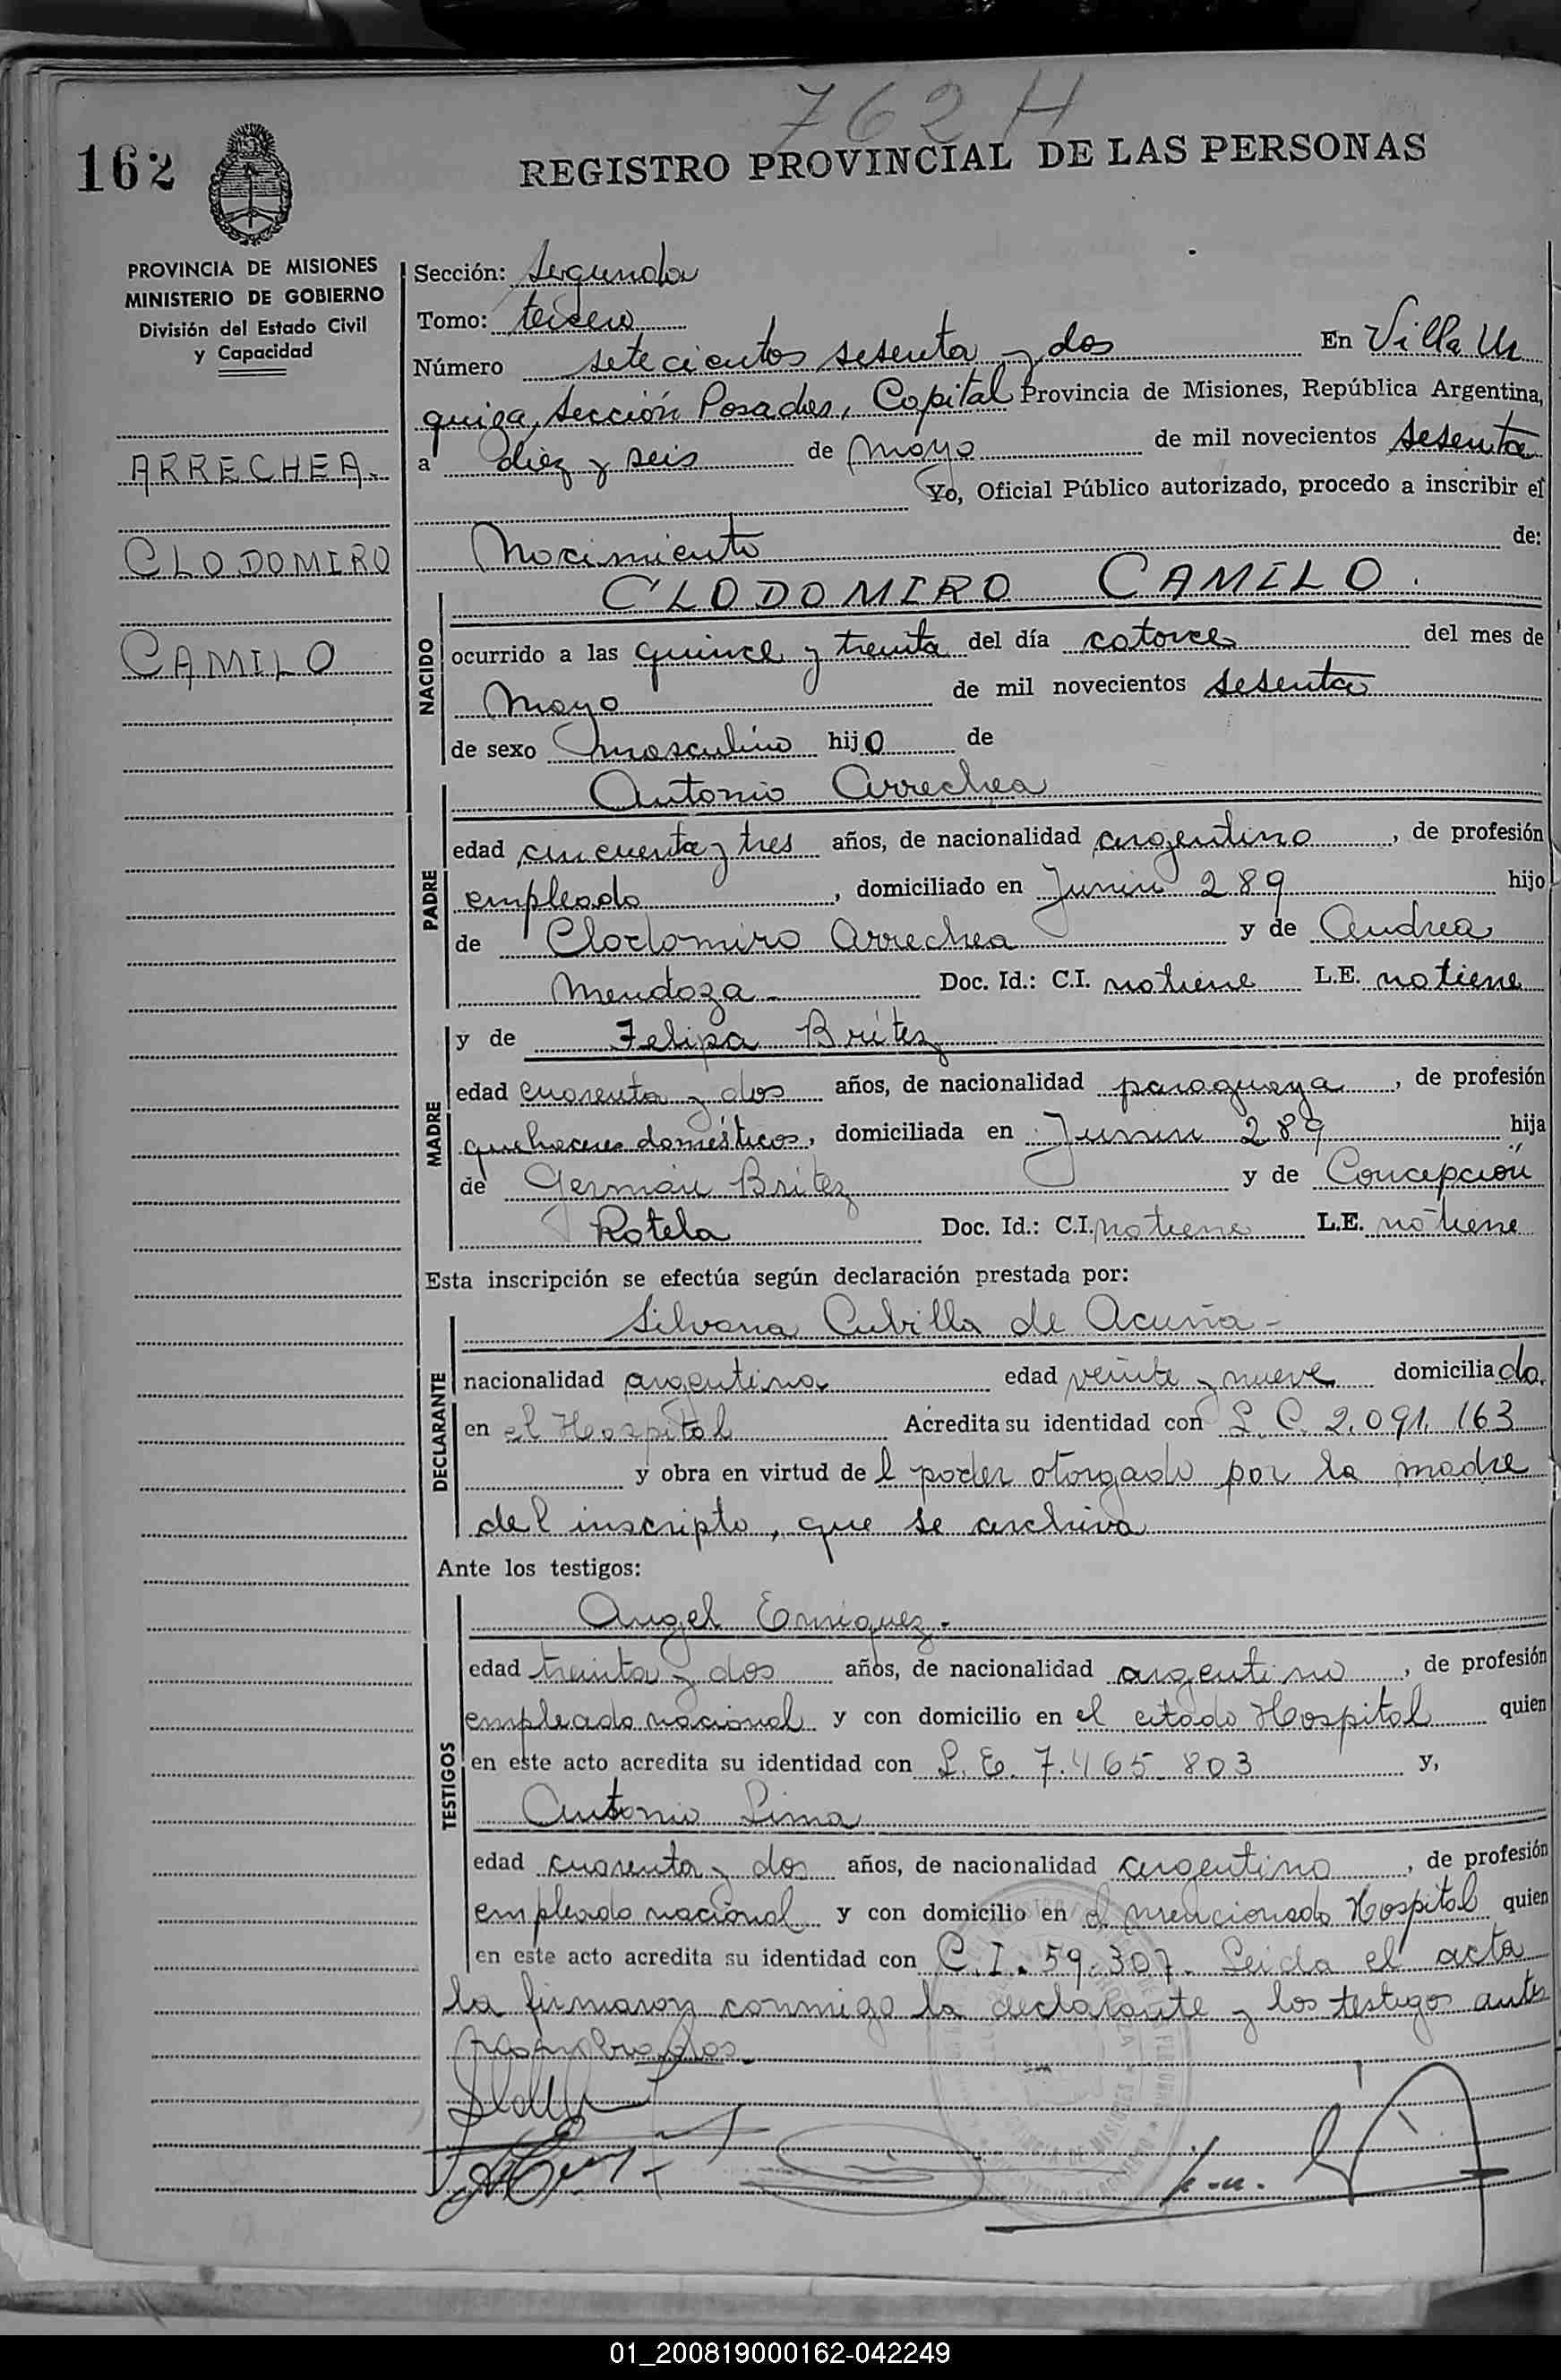 762 H
162
REGISTRO PROVINCIAL DE LAS PERSONAS
PROVINCIA DE MISIONES
MINISTERIO DE GOBIERNO
División del Estado Civil
y Capacidad
ARRECHEA.
CLODOMIRO
CAMILO
Sección: segunda
Tomo: tercero
Número setecientos sesenta y dos En Villa Ur
quiza, Sección Posadas, Capital Provincia de Misiones, República Argentina,
a diez y seis de mayo de mil novecientos sesenta
Yo, Oficial Público autorizado, procedo a inscribir el
Nacimiento de:
NACIDO
CLODOMIRO CAMILO.
ocurrido a las quince y treinta del día catorce del mes de
mayo de mil novecientos sesenta
de sexo masculino hijo de
PADRE
Antonio Arrechea
edad cincuenta y tres años, de nacionalidad argentino, de profesión
empleado, domiciliado en Junin 289 hijo
de Clodomiro Arrechea y de Andrea
Mendoza Doc. Id.: C.I. no tiene L.E. no tiene
MADRE
y de Felipa Britez
edad cuarenta y dos años, de nacionalidad paraguaya, de profesión
quehaceres domésticos, domiciliada en Junin 289 hija
de Germán Britez y de Concepción
Rotela Doc. Id.: C.I. no tiene L.E. no tiene
Esta inscripción se efectúa según declaración prestada por:
DECLARANTE
Silvana Cubilla de Acuña-
nacionalidad argentina edad veinte y nueve domiciliada.
en el Hospital Acredita su identidad con L.C. 2.091.163
y obra en virtud del poder otorgado por la madre
del inscripto, que se archiva
Ante los testigos:
TESTIGOS
Angel Enriquez.
edad treinta y dos años, de nacionalidad argentino, de profesión
empleado nacional y con domicilio en el citado Hospital quien
en este acto acredita su identidad con L.E. 7.465.803 y,
Antonio Lima
edad cuarenta y dos años, de nacionalidad argentino, de profesión
empleado nacional y con domicilio en el mencionado Hospital quien
en este acto acredita su identidad con C.I. 59.307. Leida el acta
la firmaron conmigo la declarante y los testigos antes
nombrados.
01_200819000162-042249